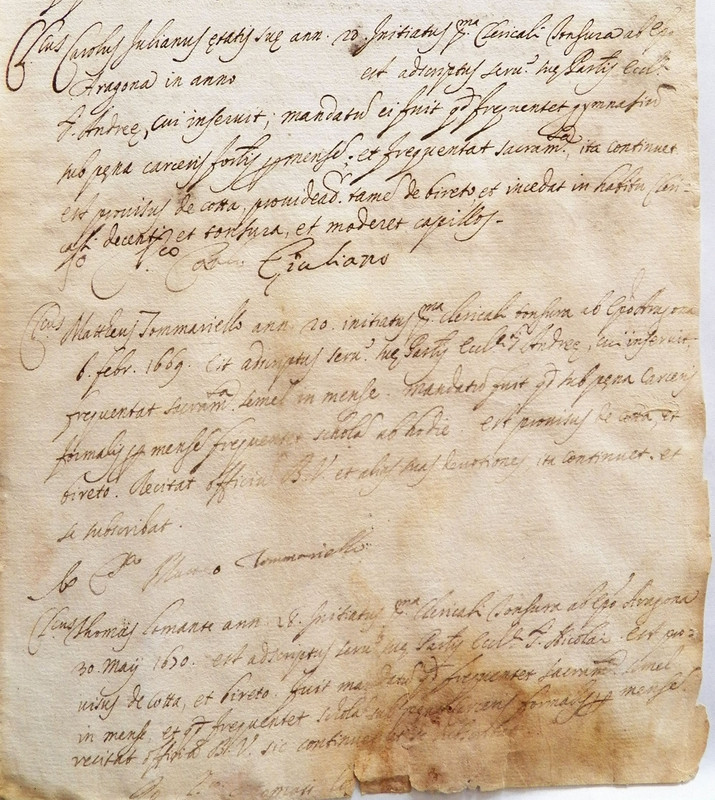 Cl.cus Carolus Julianus ętatis suę ann. 20. Initiatus p.ma Clericali Tonsura ab Ep.
Aragona in anno est adscriptus seru.º suę Parlis Eccl.
S. Andreę, cui inseruit; mandatũ ei fuit qd frequentet gymnasiũ
sub pęna carceris formalis p mensẽ, et frequentat sacram.ta, ita continuet
est prouisus de cotta, prouideat tamẽ de bireto, et incedat in habitu Cleri=
cali decenti, et tonsura, et moderet capillos.
Giuliano
Cl.cus Mattheus Tommariello ann. 20. initiatus p.ma Clericali tonsura ab Epõ Aragona
6. febr. 1669. Est adscriptus seru.º suę Parlis Eccl. S. Andreę, cui inseruit
frequentat sacram.ta semel in mense. Mandatũ fuit qd sub pęna Carceris
formalis p mensẽ frequentet scholã ab hodie. est prouisus de cotta, et
bireto. Recitat officiũ B.V. et alias suas deuotiones ita continuet. et
se subscribat.
Io Matteo Tommariello
Cl.cus Thomas Comante ann. 18. Initiatus p.ma Clericali Tonsura ab Epõ Aragona
30. Maij 1670. est adscriptus seru.º suę Parlis Eccl. S. Nicolai. est pro=
uisus de cotta, et bireto. fuit mandatũ qd frequentet sacram.ta semel
in mense, et qd frequentet scholã sub pęna carceris formalis p mensẽ
recitat officiũ B.V. sic continuet et se subscribat.